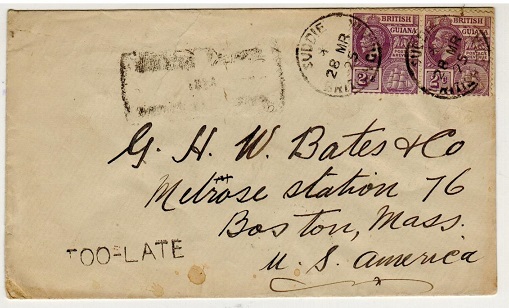 BRITISH
GUIANA
BRITISH
GUIANA
SUDDIE
28 MR
25
28 MR
G. H. W. Bates & Co
Melrose station 76
Boston, Mass.
U. S. America
TOO-LATE